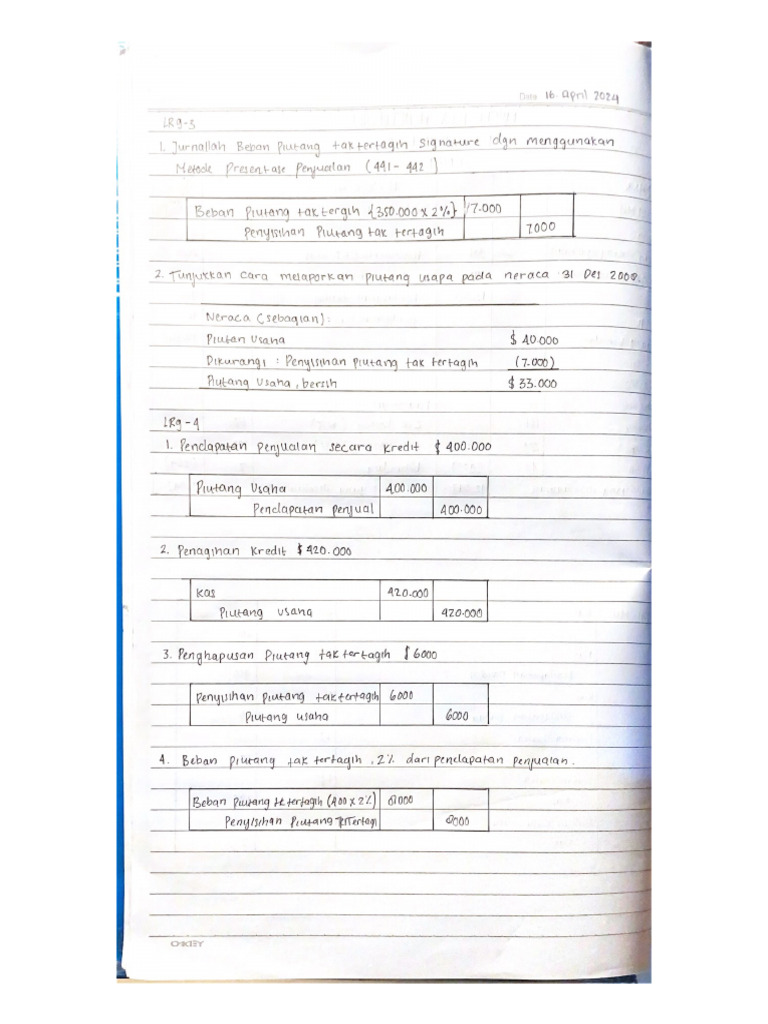 Date 16. April 2024
LRg-3
1. Jurnallah Beban Piutang taktertagih Signature dgn menggunakan
Metode Presentase Penjualan (441 - 442)
Beban Piutang tak tergih {350.000 x 2%} 7.000
Penyisihan Piutang tak tertagih 7000
2. Tunjukkan cara melaporkan piutang usapa pada neraca 31 Des 2008.
Neraca (sebagian):
Piutan Usaha $ 40.000
Dikurangi : Penyisihan piutang tak tertagih (7.000)
Piutang Usaha, bersih $ 33.000
LRg-4
1. Pendapatan penjualan secara kredit $ 400.000
Piutang Usaha 400.000
Pendapatan penjual 400.000
2. Penagihan kredit $ 420.000
Kas 420.000
Piutang usaha 420.000
3. Penghapusan Piutang taktertagih $ 6000
Penyisihan piutang taktertagih 6000
Piutang usaha 6000
4. Beban piutang tak tertagih, 2% dari pendapatan penjualan.
Beban piutang tk tertagih (400 x 2%) 8000
Penyisihan Piutang 8000